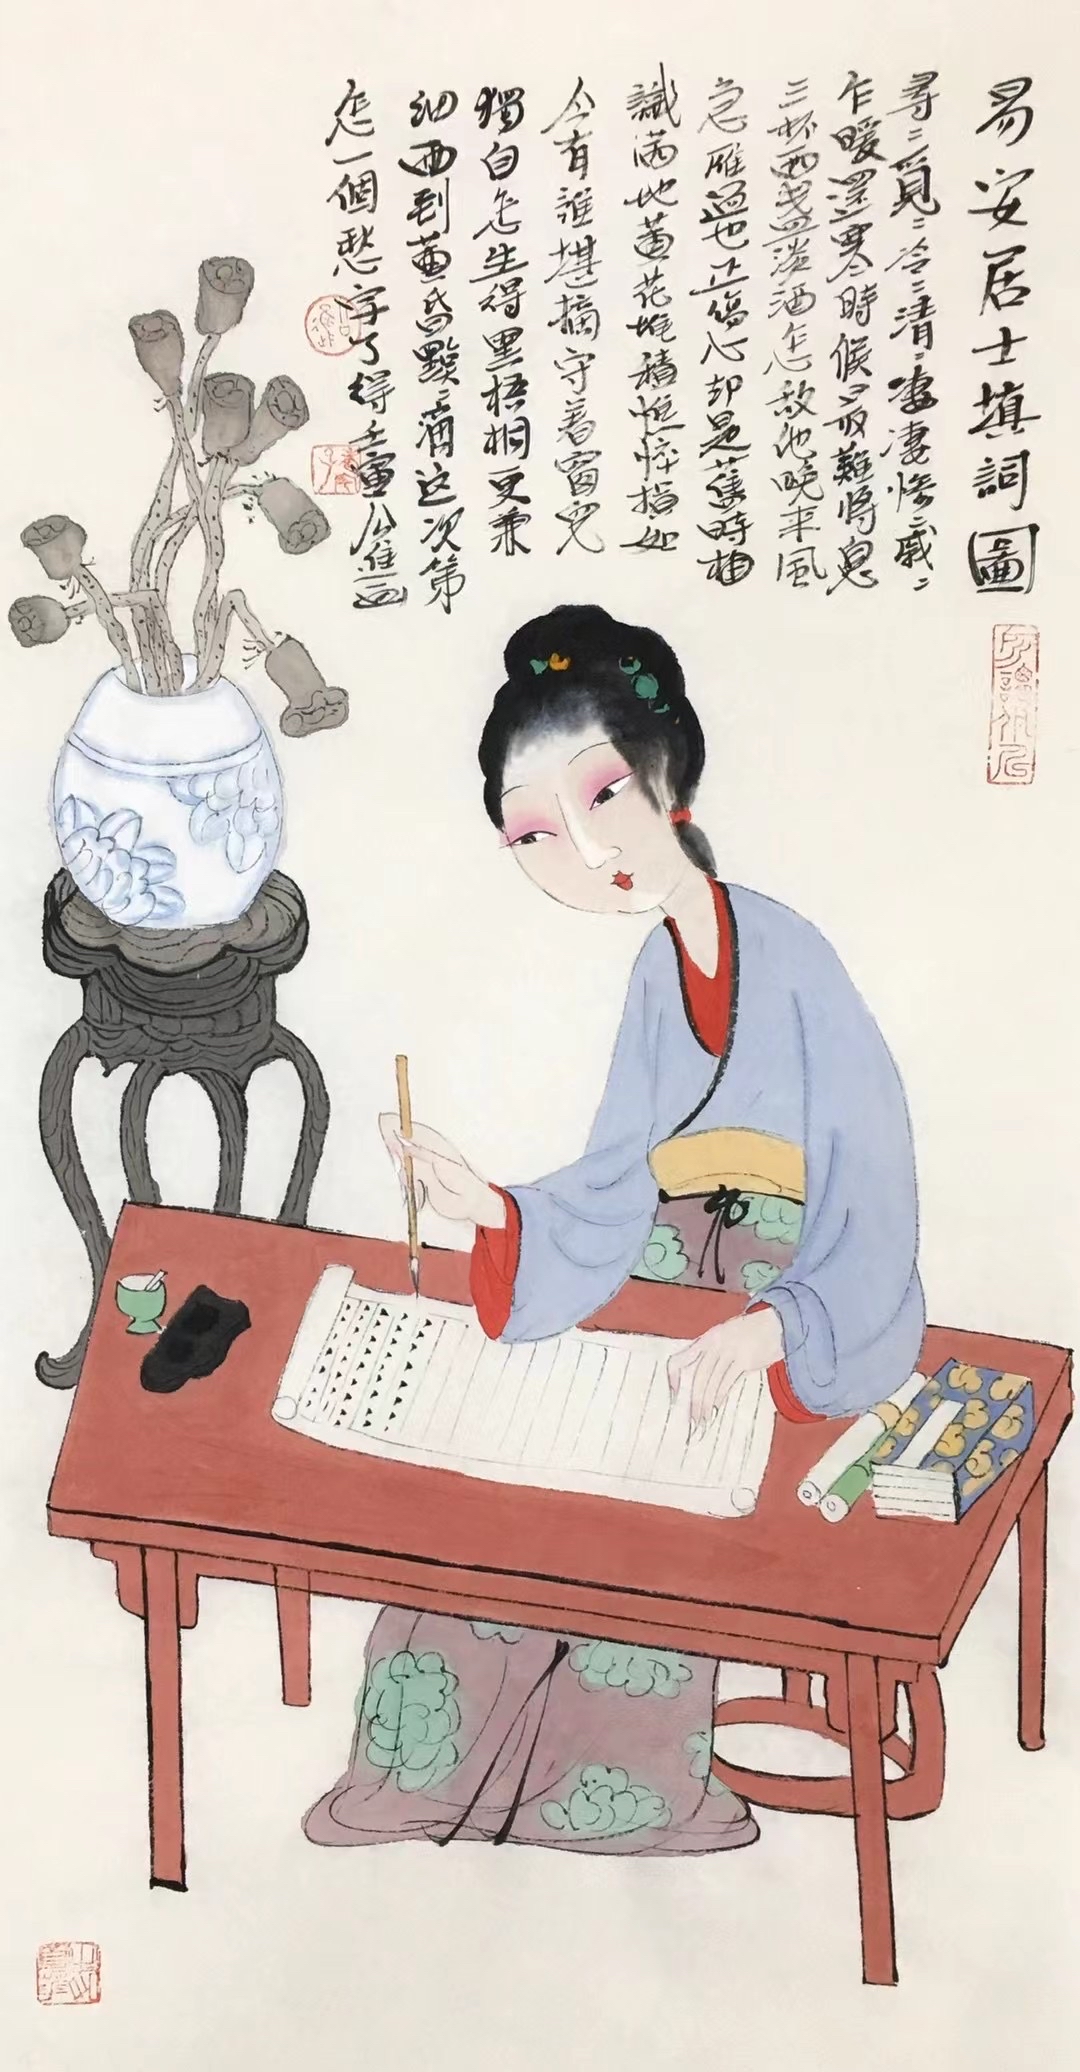 易安居士填詞圖
尋〻覓〻冷〻清〻凄凄慘〻戚〻
乍暖還寒時候最難將息
三杯兩盞淡酒怎敵他晚來風
急雁過也正傷心却是舊時相
識滿地黃花堆積憔悴損如
今有誰堪摘守着窗兒
獨自怎生得黑梧桐更兼
細雨到黃昏點〻滴这次第
怎一個愁字了得壬寅画